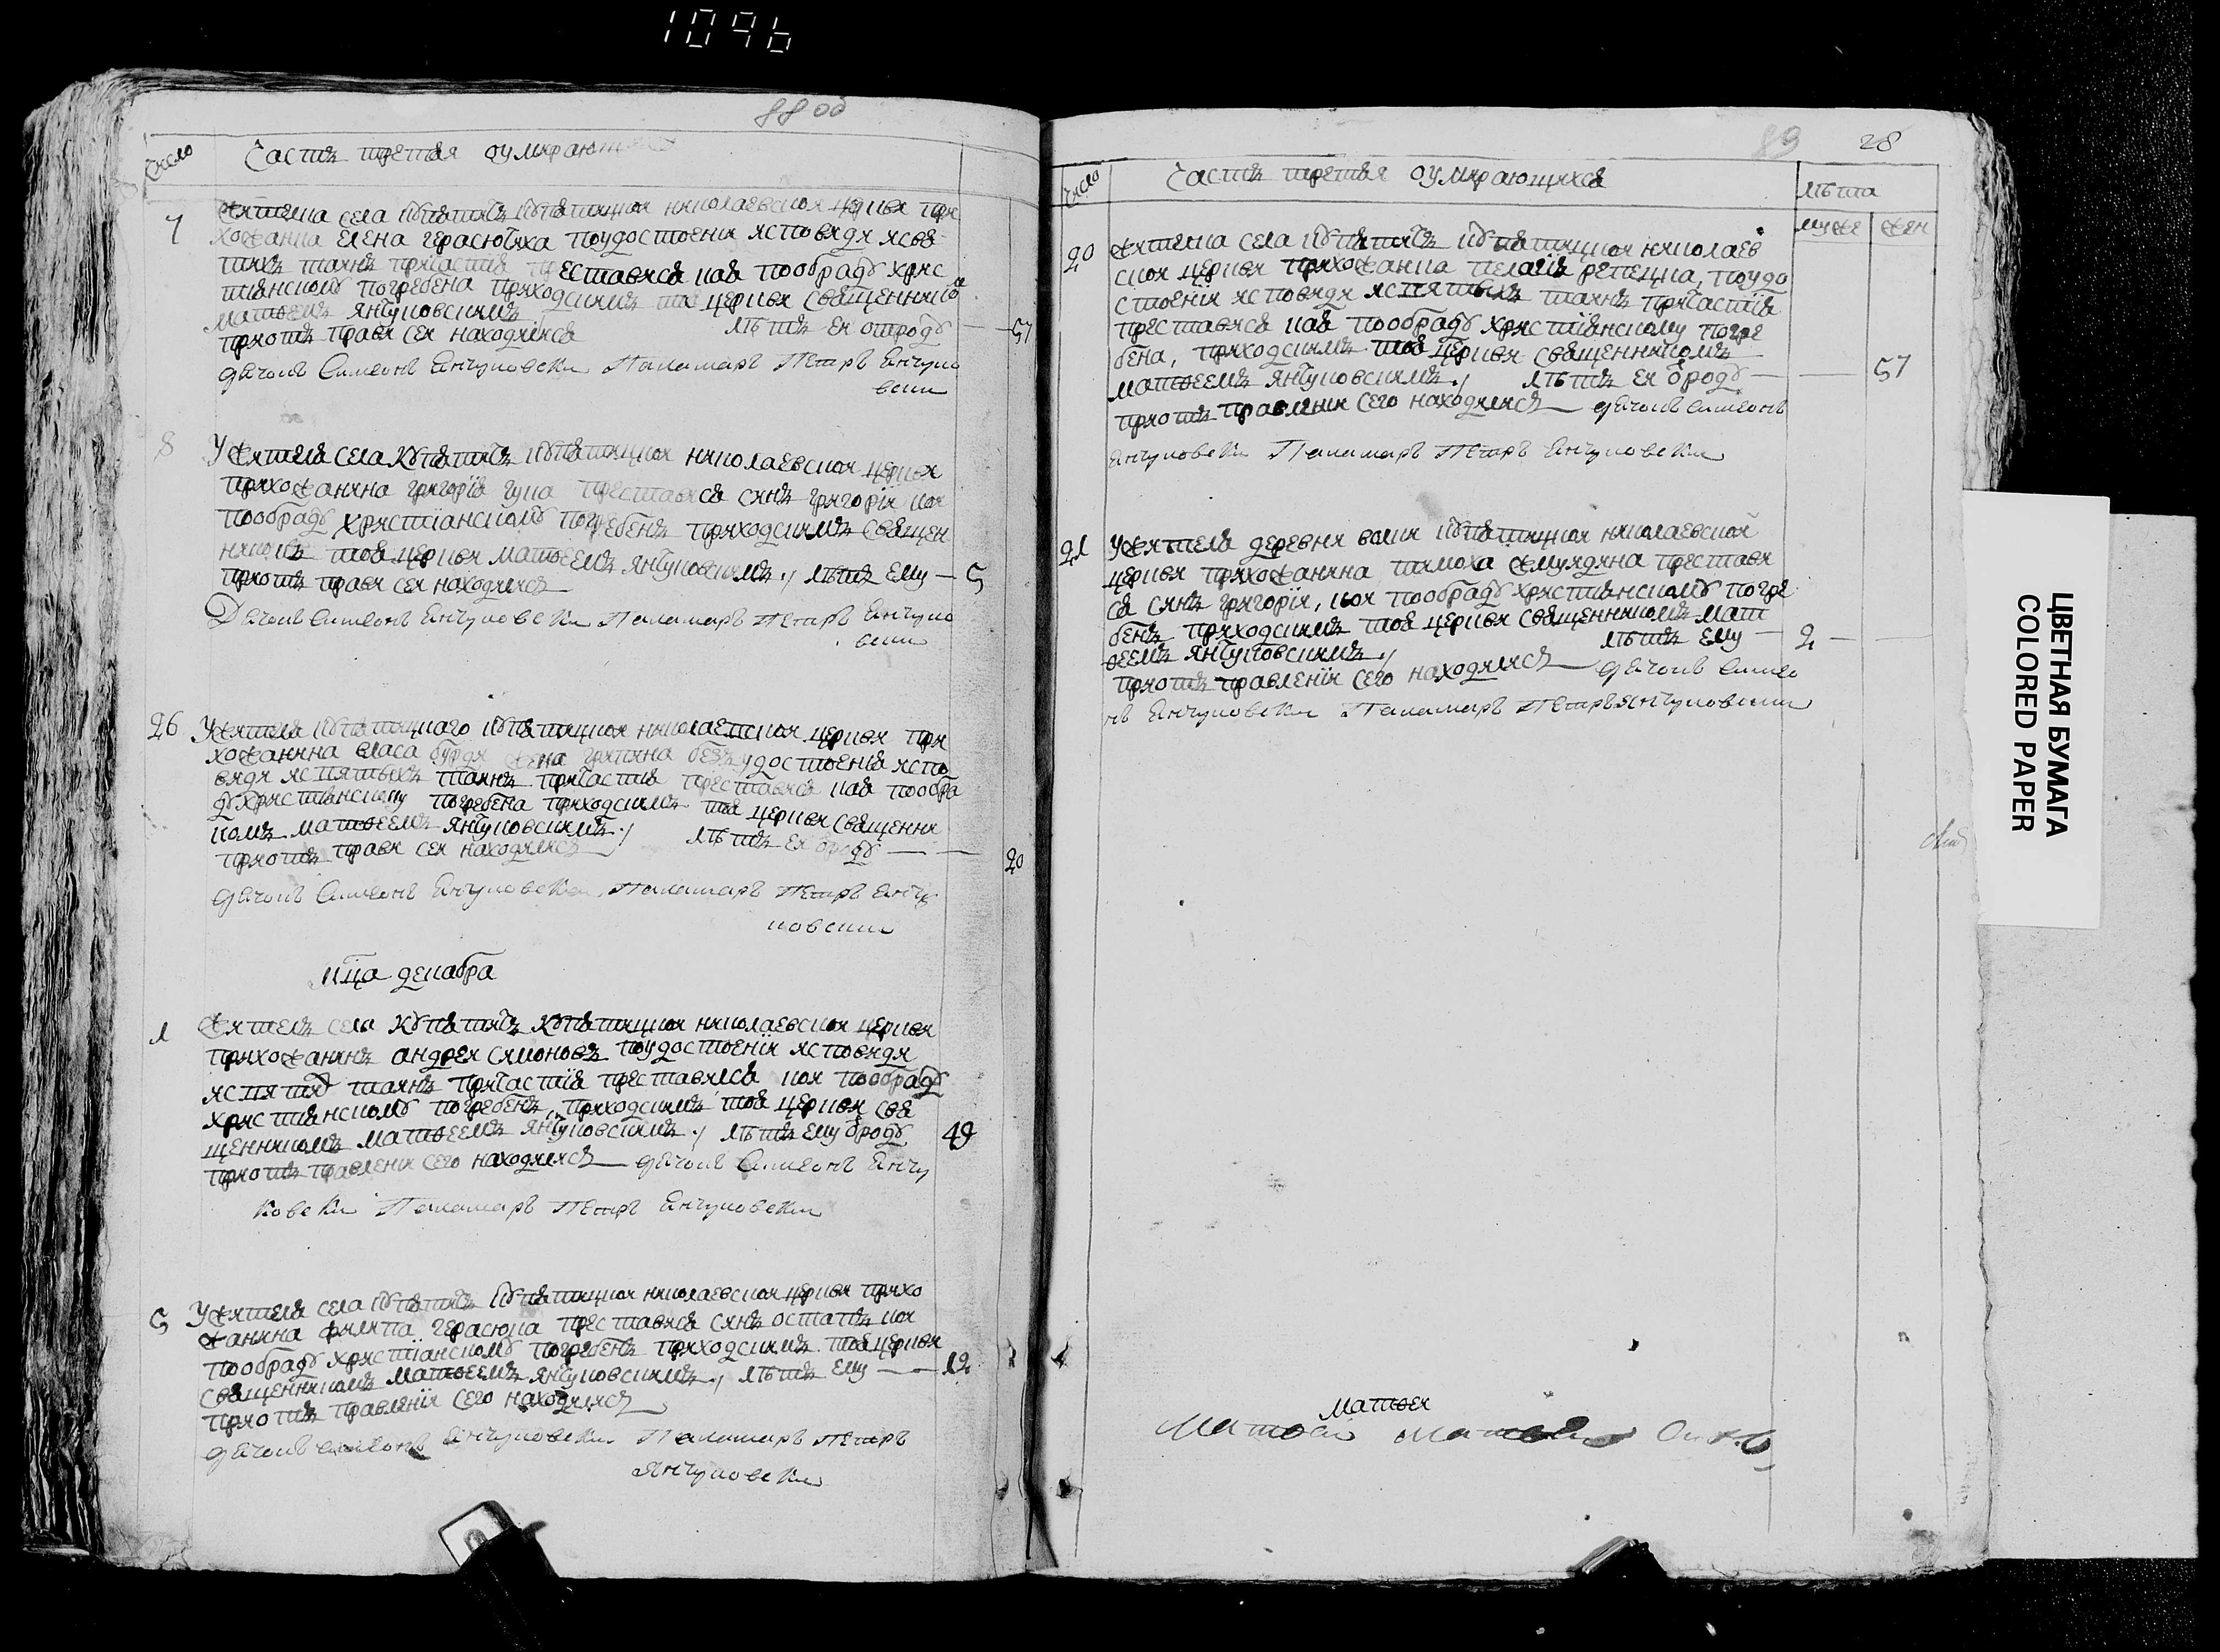 1096
88 об
Число
Часть третая оумирающи
7
Жителка села Купятичъ Купятицкои николаевскои церкви при
хожанка Елена герасючиха поудостоении исповѣди исвя
тихъ таинъ причастия преставися кая пообряду хрис
тианскому погребена приходскимъ тоя церкви священнико
матвеемъ янчуковскимъ
лѣтъ еи отроду — 57
притом прави сеи находился
дячокъ Симеонъ Янчуковски Паламаръ Петръ Янчуко
вски
8
У жителя села Купятичъ Купятицкои николаевскои церкви
прихожанина григория гука преставися синъ григории кои
пообряду христианскому погребенъ приходскимъ священ
никомъ тоя церкви матвеемъ янчуковскимъ ./ лѣтъ ему — 5
притом прави сеи находился
Дячокъ Симеонъ Янчуковски Паламаръ Петръ Янчуко
вски
26
У жителя Купятицкаго Купятицкои николаевскои церкви при
хожанина власа бурди жена безъ удостоения испо
вѣди исвятыхъ таинъ причастия преставися кая пообря
ду християнскому погребена приходскимъ тоя церкви священни
комъ матвеемъ янчуковскимъ ./ лѣтъ еи ѿроду — 20
притом прави сеи находился
дячокъ Симеонъ Янчуковски Паламаръ Петръ Янчу
ковски
мца декабра
1
Житель села Купятичъ Купятицкои николаевскои церкви
прихожанинъ андреи симоновъ поудостоении исповиди
исвятихъ таинъ причастия преставися кои пообряду
християнскому погребенъ, приходскимъ тоя церкви свя
щенникомъ матвеемъ янчуковскимъ ./ лѣтъ ему ѿроду 49
притомъ правлении сего находился — дячокъ Симеонъ Янчу
ковски Паламаръ Петръ Янчуковски
5
У жителя села Купятичъ Купятицкои николаевскои церкви прихо
жанина филипа герасюка преставися синъ остапъ кои
пообряду христианскому погребенъ приходскимъ тоя церкви
священникомъ матвеемъ янчуковскимъ ./ лѣтъ ему — 12
притомъ правлении сего находился
дячокъ Симеонъ Янчуковски Паламаръ Петръ
Янчуковски
89 28
Число
Часть третья оумирающихся
лѣта
муже жен
20
Жителка села Купятичъ Купятицкои николаев
скои церкви прихожанка пелагия репецка, поудо
стоении исповиди исвятыхъ таинъ причастия
преставися кая пообряду христианскому погре
бена, приходскимъ тоя церкви священникомъ
матвеемъ янчуковскимъ ./ лѣтъ еи ѿроду — 57
притомъ правлении сего находился — дячокъ Симеонъ
Янчуковски Паламаръ Петръ Янчуковски
21
У жителя деревни волки Купятицкои николаевскои
церкви прихожанина тимоха жмудина престави
ся синъ григории, кои пообряду християнскому погре
бенъ приходскимъ тоя церкви священникомъ мат
веемъ янчуковскимъ ./ лѣтъ ему — 2
притомъ правлении сего находился — дячокъ Симео
нъ Янчуковски Паламаръ Петръ Янчуковски
матвеи
Матвеи
ЦВЕТНАЯ БУМАГА
COLORED PAPER